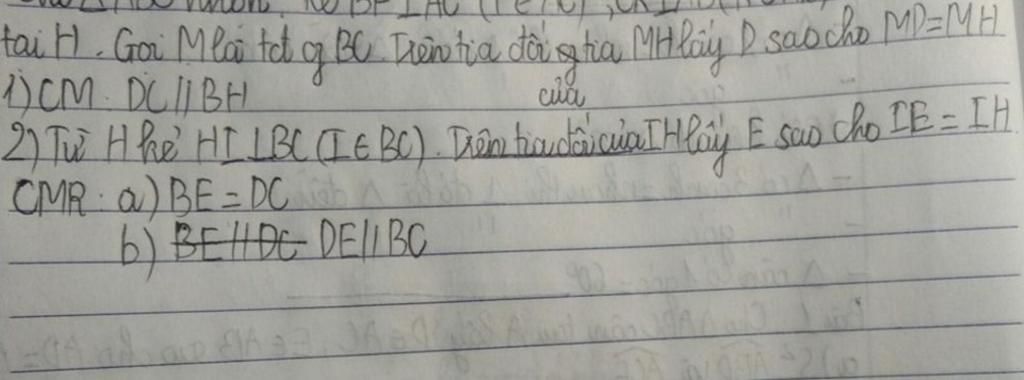 tại H. Gọi M là tđ của BC. Trên tia đối của tia MH lấy D sao cho MD=MH
1) CM. DC // BH
2) Từ H kẻ HI ⊥ BC (I ∈ BC). Trên tia đối của IH lấy E sao cho IE = IH
CMR: a) BE = DC
b) BE // DC DE // BC